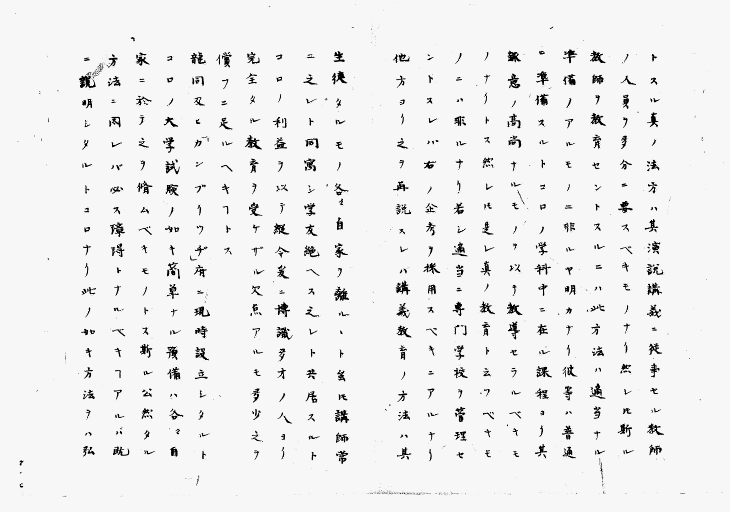 トスル真ノ法方ハ其演説講義ニ従事セル教師
ノ人員ヲ多分ニ要スベキモノナリ然レ𪜈斯ル
教師ヲ教育セントスルニハ此方法ハ適当ナル
準備ノアルモノニ非ルヤ明カナリ彼等ハ普通
ニ準備スルトコロノ学科中ニ在ル課程ヨリ其
意ノ高尚ナルモノヲ以テ教導セラルベキモ
ノナリトス然レ𪜈是レ真ノ教育ト云フベキモ
ノニハ非ルナリ若シ適当ニ専門学校ヲ管理セ
ントスレバ右ノ企考ヲ採用スベキニアルナリ
他方ヨリ之ヲ再説スレバ講義教育ノ方法ハ其
生徒タルモノ各々自家ヲ離ルヽト雖𪜈講師常
ニ之レト同寓シ学友絶ヘス之レト共居スルト
コロノ利益ヲ以テ縦令爰ニ博識多才ノ人ヨリ
完全タル教育ヲ受ケザル欠点アルモ多少之ヲ
償フニ足ルヘキヿトス
龍同及ヒガンブリウヂ府ニ現時設立シタルト
コロノ大学試験ノ如キ簡単ナル預備ハ各々自
家ニ於テ之ヲ脩ムベキモノトス斯ル公然タル
方法ニ因レバ必ス障碍トナルベキヿアルハ既
ニ説明シタルトコロナリ此ノ如キ方法ヲハ弘